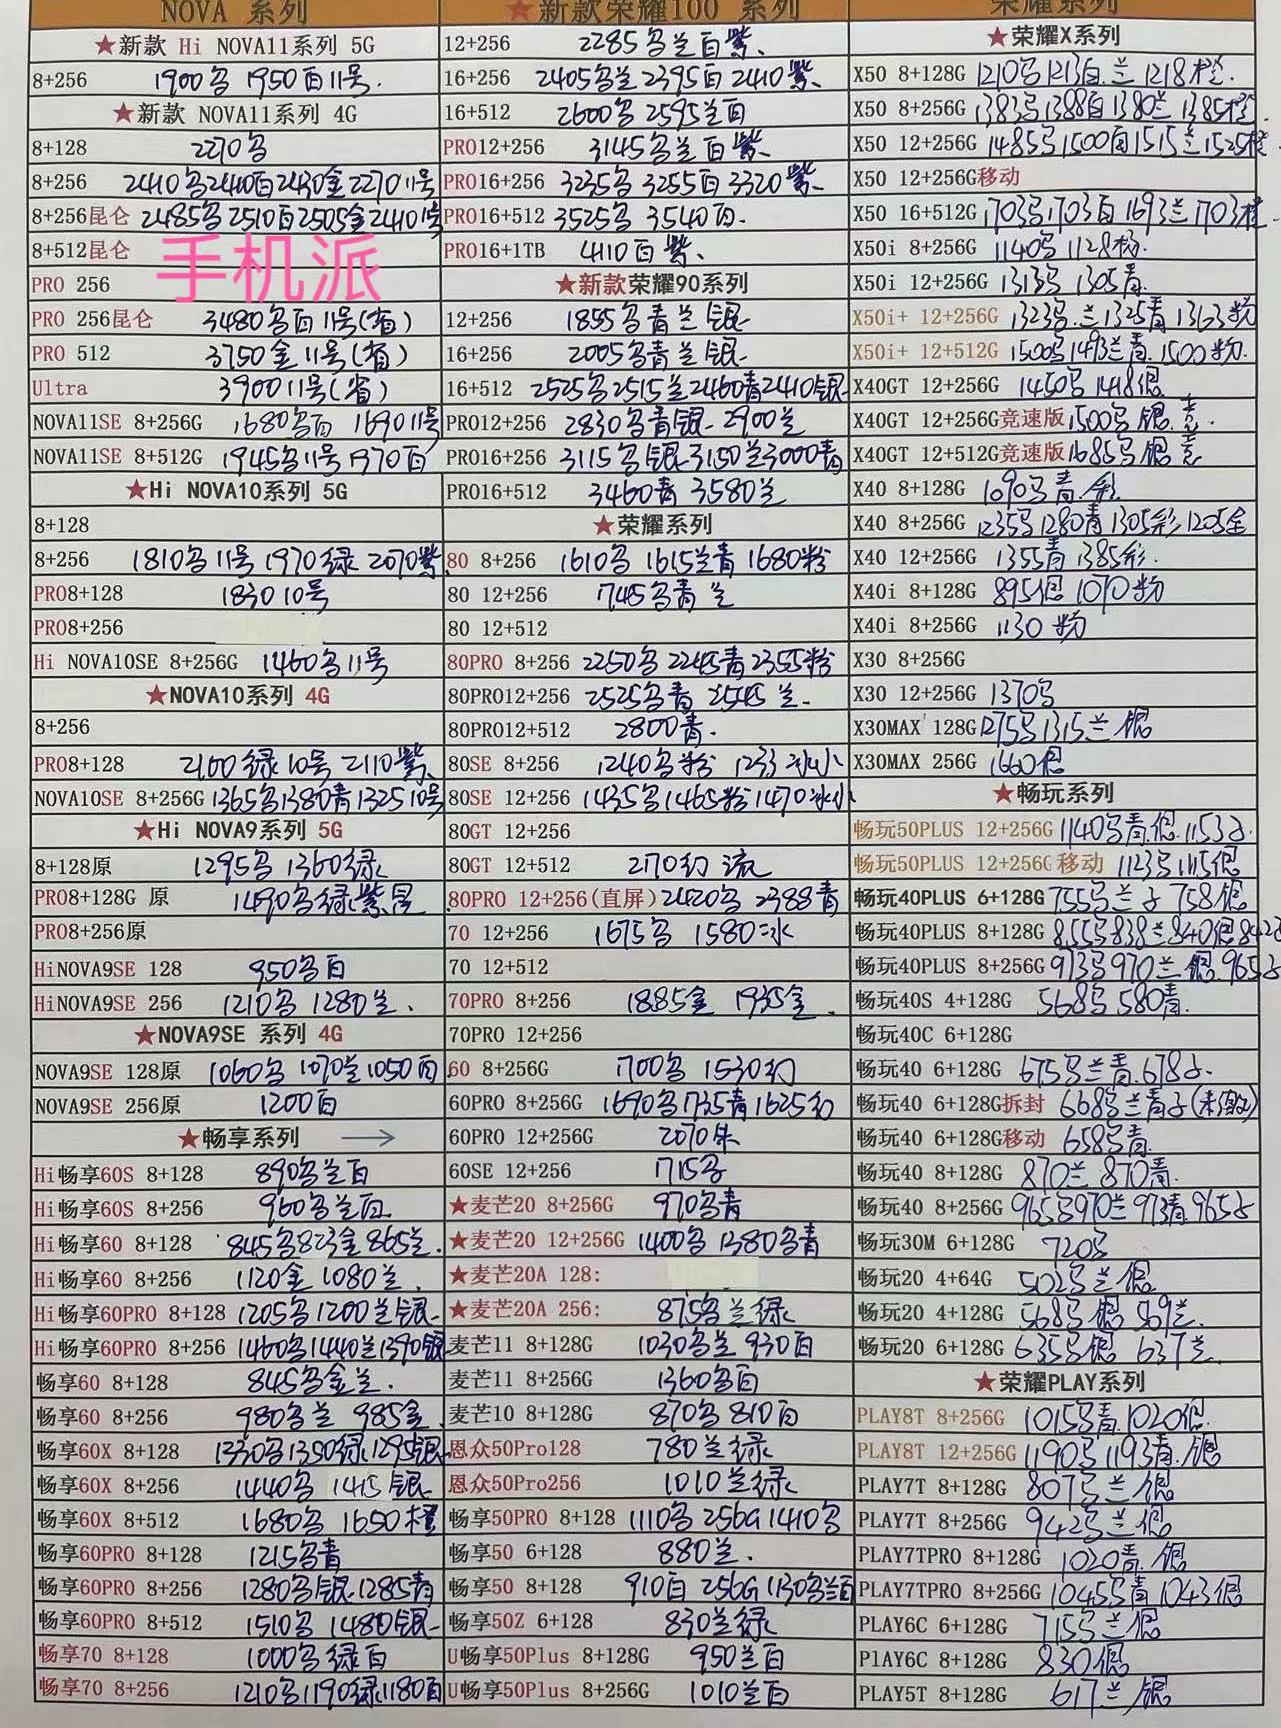 NOVA 系列
★新款 Hi NOVA11系列 5G
8+256 1900名 1950百11号.
★新款 NOVA11系列 4G
8+128 2270名
8+256 2410名2440百2430金2270 11号
8+256昆仑 2485名2510百2505金2410 11号
8+512昆仑
手机派
PRO 256
PRO 256昆仑 3480名百11号(省)
PRO 512 3750金11号(省)
Ultra 3900 11号(省)
NOVA11SE 8+256G 1680名百 1690 11号
NOVA11SE 8+512G 1945名11号 1970百
★Hi NOVA10系列 5G
8+128
8+256 1810名11号 1970绿 2070紫
PRO8+128 1830 10号
PRO8+256
Hi NOVA10SE 8+256G 1460名11号
★NOVA10系列 4G
8+256
PRO8+128 2100绿10号 2110紫
NOVA10SE 8+256G 1365名1380青1325 10号
★Hi NOVA9系列 5G
8+128原 1295名 1360绿
PRO8+128G 原 1490名绿紫星
PRO8+256原
HiNOVA9SE 128 950名百
HiNOVA9SE 256 1210名 1280兰.
★NOVA9SE 系列 4G
NOVA9SE 128原 1060名 1070兰1050百
NOVA9SE 256原 1200百
★畅享系列 →
Hi畅享60S 8+128 890名兰百
Hi畅享60S 8+256 960名兰百
Hi畅享60 8+128 845名823金865兰.
Hi畅享60 8+256 1120金 1080兰
Hi畅享60PRO 8+128 1205名1200兰银
Hi畅享60PRO 8+256 1460名1440兰1390银
畅享60 8+128 845名金兰.
畅享60 8+256 980名兰 985金
畅享60X 8+128 1330名1350绿1295银
畅享60X 8+256 1440名 1415银
畅享60X 8+512 1680名 1650橙
畅享60PRO 8+128 1215名青
畅享60PRO 8+256 1280名银 1285青
畅享60PRO 8+512 1510名 1480银
畅享70 8+128 1000名绿百
畅享70 8+256 1210名1190绿1180百
★新款荣耀100 系列
12+256 2285名兰百紫
16+256 2405名兰2395百2410紫
16+512 2600名 2595兰百
PRO12+256 3145名兰百紫
PRO16+256 3235名 3255百3320紫
PRO16+512 3525名 3540百.
PRO16+1TB 4110百紫
★新款荣耀90系列
12+256 1855名青兰银
16+256 2005名青兰银
16+512 2525名2515兰2460青2410银
PRO12+256 2830名青银 2900兰
PRO16+256 3115名银3150兰3000青
PRO16+512 3460青 3580兰
★荣耀系列
80 8+256 1610名 1615兰青 1680粉
80 12+256 1745名青兰
80 12+512
80PRO 8+256 2250名2245青2355粉
80PRO12+256 2525名青 2545兰.
80PRO12+512 2800青.
80SE 8+256 1240名粉 1233冰
80SE 12+256 1435名1465粉1470冰
80GT 12+256
80GT 12+512 2170幻 流
80PRO 12+256(直屏) 2420名 2388青
70 12+256 1675名 1580冰
70 12+512
70PRO 8+256 1885金 1935金.
70PRO 12+256
60 8+256G 1700名 1530幻
60PRO 8+256G 1690名1735青1625幻
60PRO 12+256G 2070朱
60SE 12+256 1715名
★麦芒20 8+256G 970名青
★麦芒20 12+256G 1400名 1380名青
★麦芒20A 128:
★麦芒20A 256: 875名兰绿
麦芒11 8+128G 1030名兰 930百
麦芒11 8+256G 1360名百
麦芒10 8+128G 870名 810百
恩众50Pro128 780兰绿
恩众50Pro256 1010兰绿
畅享50PRO 8+128 1110名 256G 1410名
畅享50 6+128 880兰.
畅享50 8+128 910百 256G 1130名兰百
畅享50Z 6+128 830兰绿
U畅享50Plus 8+128G 950兰百
U畅享50Plus 8+256G 1010兰百
荣耀系列
★荣耀X系列
X50 8+128G 1210名1213百.兰 1218橙.
X50 8+256G 1383名1388百1380兰 1385橙
X50 12+256G 1485名1500百1515兰1525橙
X50 12+256G移动
X50 16+512G 1703名1703百1693兰1703橙
X50i 8+256G 1140名1128粉.
X50i 12+256G 1313名 1305青.
X50i+ 12+256G 1323名.兰1325青1363粉
X50i+ 12+512G 1500名1493兰青.1500粉.
X40GT 12+256G 1450名1418银
X40GT 12+256G竞速版 1500名银.竞.
X40GT 12+512G竞速版 1685名银竞
X40 8+128G 1090名青.彩
X40 8+256G 1235名1280青1305彩1205金
X40 12+256G 1355青1385彩.
X40i 8+128G 895银1070粉
X40i 8+256G 1130粉
X30 8+256G
X30 12+256G 1370名
X30MAX 128G 1275名1315兰银
X30MAX 256G 1660银
★畅玩系列
畅玩50PLUS 12+256G 1140名青.银.1153子.
畅玩50PLUS 12+256G 移动 1123名1115银
畅玩40PLUS 6+128G 755名兰子 758银
畅玩40PLUS 8+128G 855名838兰840银842子
畅玩40PLUS 8+256G 973名970兰银.965子
畅玩40S 4+128G 568名580青.
畅玩40C 6+128G
畅玩40 6+128G 675名兰青.678子.
畅玩40 6+128G拆封 668名兰青子(未激)
畅玩40 6+128G移动 658名青.
畅玩40 8+128G 870兰870青.
畅玩40 8+256G 965名970兰973青965子
畅玩30M 6+128G 720名
畅玩20 4+64G 502名兰银
畅玩20 4+128G 568名银569兰.
畅玩20 6+128G 635名银 637兰.
★荣耀PLAY系列
PLAY8T 8+256G 1015名青1020银.
PLAY8T 12+256G 1190名1193青.银
PLAY7T 8+128G 807名兰银
PLAY7T 8+256G 942名兰银.
PLAY7TPRO 8+128G 1020青.银
PLAY7TPRO 8+256G 1045名青1043银
PLAY6C 6+128G 715名兰银
PlAY6C 8+128G 830银
PLAY5T 8+128G 617兰银